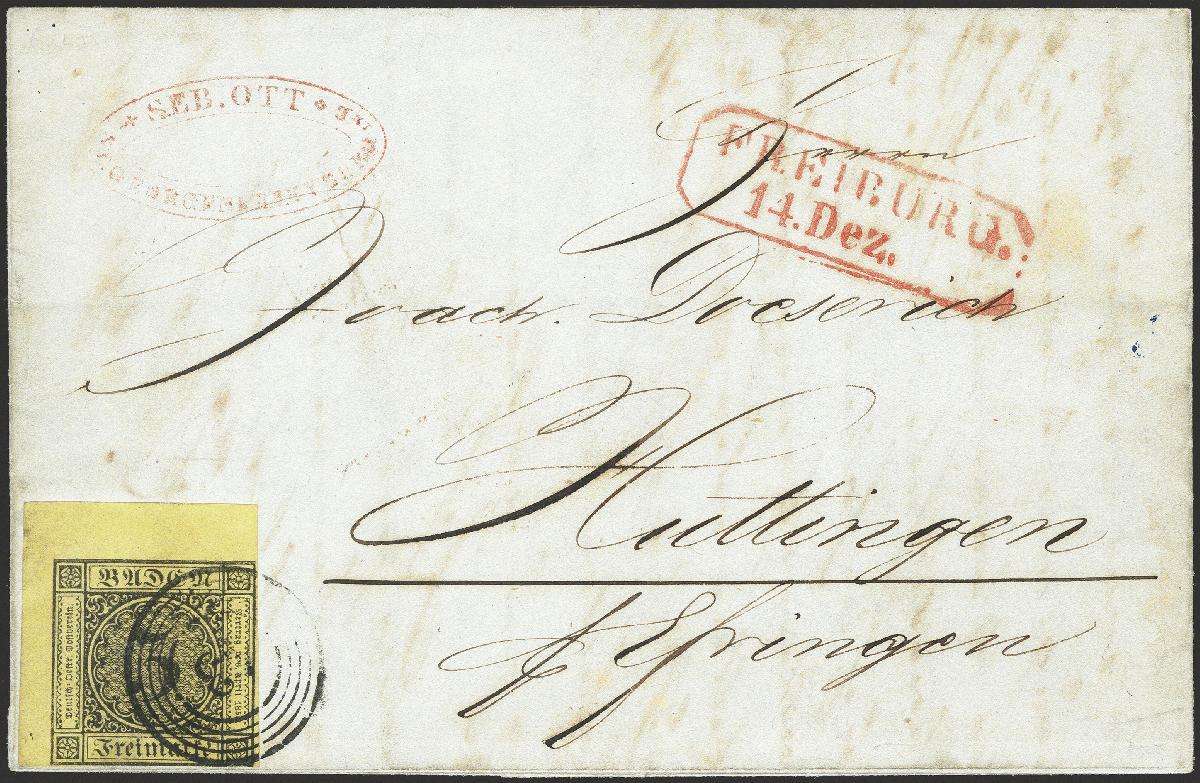 * SEB. OTT *
FREIBURG.
14. Dez.
Herrn
Joach. Doeserich
Huttingen
p Efringen
BADEN
Deutsch-Oestr. Postverein.
Freimarke